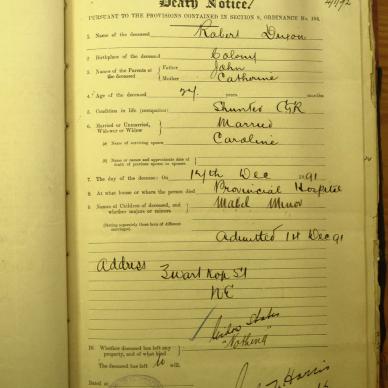 Death Notice.
PURSUANT TO THE PROVISIONS CONTAINED IN SECTION 9, ORDINANCE No. 104.
1. Name of the deceased Robert
2. Birthplace of the deceased Colony
3. Names of the Parents of the deceased { Father John
Mother Catherine
4. Age of the deceased 27 years months
5. Condition in life (occupation) CGR
6. Married or Unmarried, Widower or Widow } Married
(a) Name of surviving spouse Caroline
(b) Name or names and approximate date of death of previous spouse or spouses
7. The day of the decease: On 14th Dec 1891
8. At what house or where the person died Provincial Hospital
9. Names of Children of deceased, and whether majors or minors } Mabel Minor
(Stating separately those born of different marriages)
Admitted 1st Dec 91
Address
St
NE
Widow States
"Nothing"
10. Whether deceased has left any property, and of what kind
The deceased has left no will.
Dated at
Harris